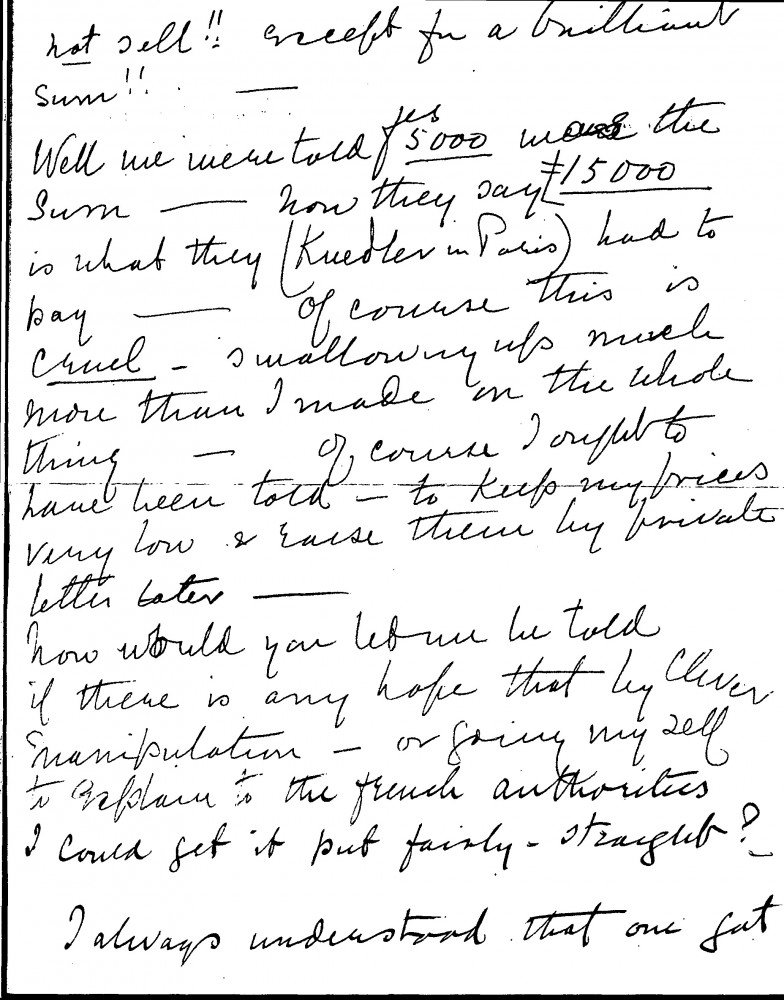 not sell!! except for a brilliant
sum!! —
Well we were told frs 5000 was the
sum — now they say 15000
is what they (Knedler in Paris) had to
pay — Of course this is
cruel - swallowing up much
more than I made on the whole
thing — Of course I ought to
have been told - to keep my prices
very low & raise them by private
letter later —
now would you let me be told
if there is any hope that by clever
manipulation - or going myself
to explain to the french authorities
I could get it put fairly - straight?
I always understood that one got